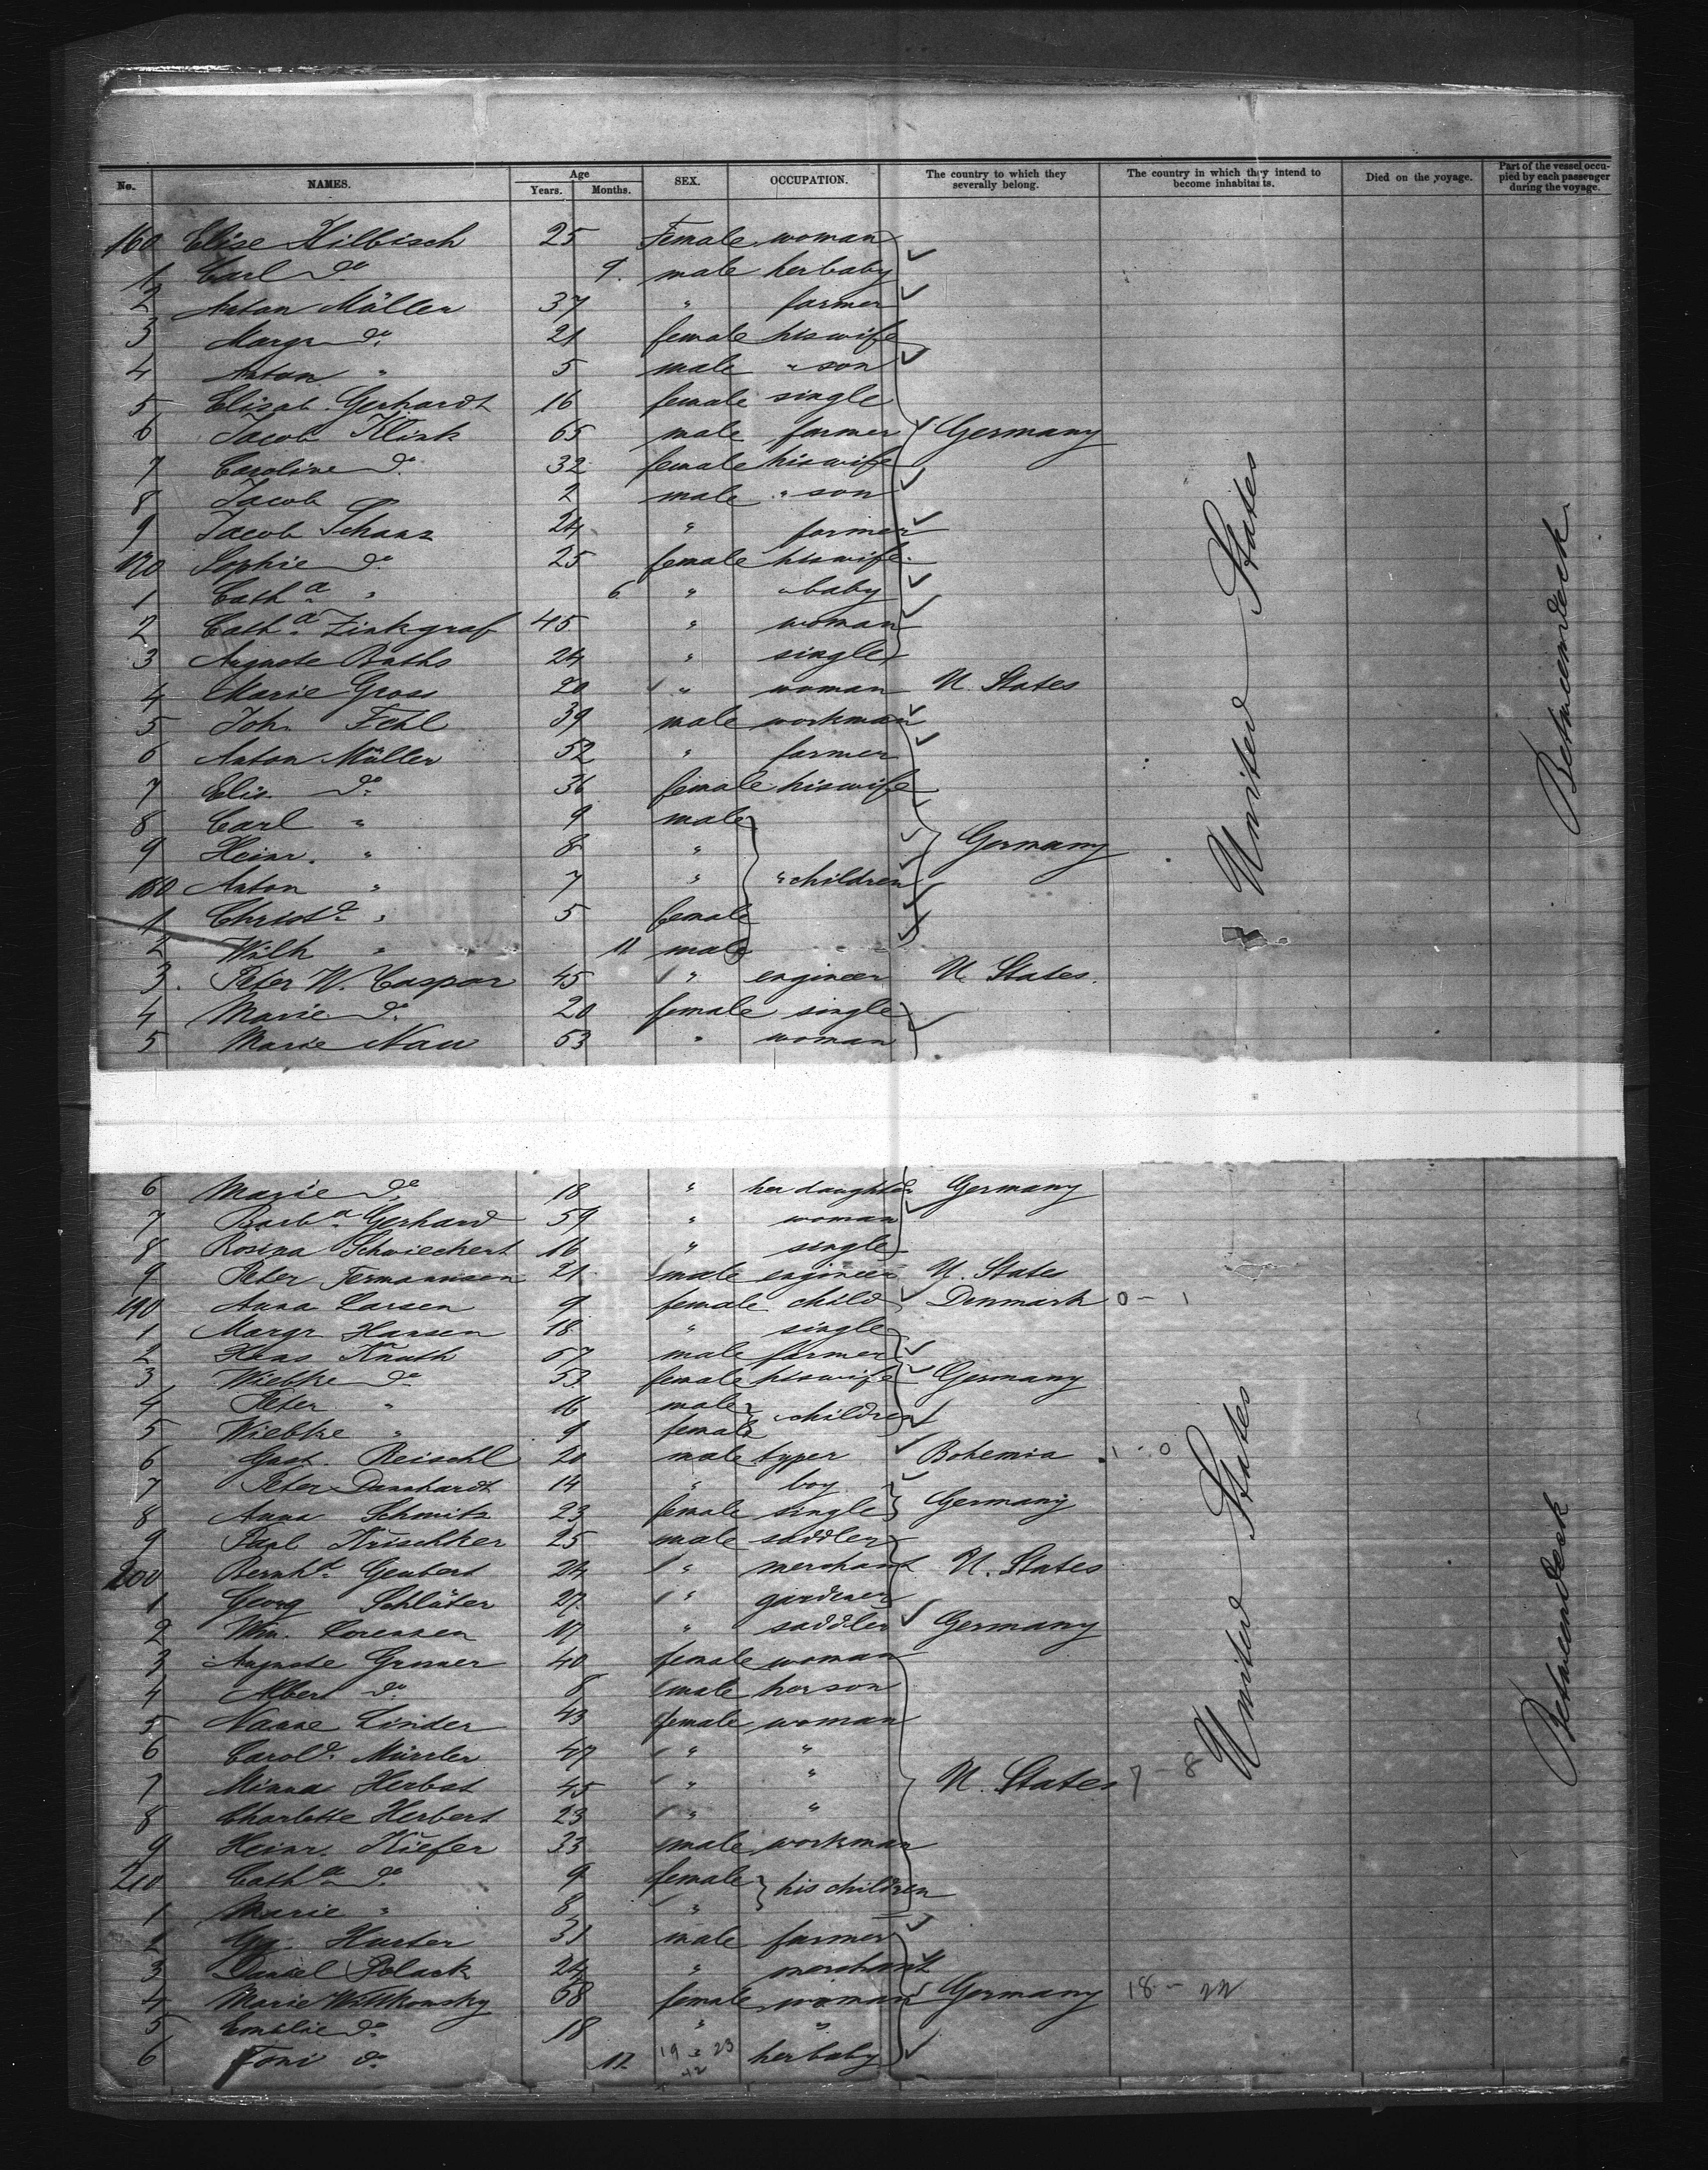 No. NAMES. Age Years. Months. SEX. OCCUPATION. The country to which they severally belong. The country in which they intend to become inhabitants. Died on the voyage. Part of the vessel occupied by each passenger during the voyage.
160 Elise Hilbisch 25 Female woman
1 Carl do 9. male her baby
2 Anton Müller 37 " farmer
3 Margr do 21 female his wife
4 Anton " 5 male " son
5 Elisab. Gerhardt 16 female single
6 Jacob Klink 65 male farmer Germany
7 Caroline do 32 female his wife
8 Jacob 2 male " son
9 Jacob Schanz 24 " farmer
170 Sophie do 25 female his wife
1 Catha " 6 " " baby
2 Catha Zinkgraf 45 " woman
3 Auguste Baths 24 " single
4 Marie Gross 20 " woman U. States
5 Joh. Fehl 39 male workman
6 Anton Müller 52 " farmer
7 Elis. do 36 female his wife
8 Carl " 9 male
9 Heinr. " 8 " Germany
180 Anton " 7 " " children
1 Christe " 5 female
2 Wilh " 11 male
3 Peter W. Caspar 45 " engineer U. States.
4 Marie do 20 female single
5 Marie Nau 53 " woman
United States
Betweendeck
6 Marie do 18 " her daughter Germany
7 Barba Gerhard 59 " woman
8 Rosina Schwieckert 16 " single
9 Peter Fermannsen 21 male engineer U. States
190 Anna Larsen 9 female child Denmark 0 - 1
1 Margr Hansen 18 " single
2 Hans Knuth 57 male farmer
3 Wiebke do 53 female his wife Germany
4 Peter " 16 male
5 Wiebke " 9 female children
6 Gust. Reischl 20 male typer Bohemia 1 - 0
7 Peter Danhardt 14 " boy
8 Anna Schmitz 23 female single Germany
9 Paul Krischker 25 male saddler
200 Bernhd Geubert 24 " merchant U. States
1 Georg Schlüter 27 " gardener
2 Wm. Lorenzen 17 " saddler Germany
3 Auguste Gruner 40 female woman
4 Albert do 8 male her son
5 Nanne Linder 43 female woman
6 Carole Münzler 47 " "
7 Minna Herbst 45 " " U. States 7 - 8
8 Charlotte Herbert 23 " "
9 Heinr. Kiefer 33 male workman
210 Catha do 9 female his children
1 Marie " 8 "
2 Harter 31 male farmer
3 Daniel Polack 24 " merchant
4 Marie Wittkowsky 58 female woman Germany 18 - 22
5 Emilie do 18 " "
6 Toni do 11 19 - 23 her baby
42
United States
Betweendeck